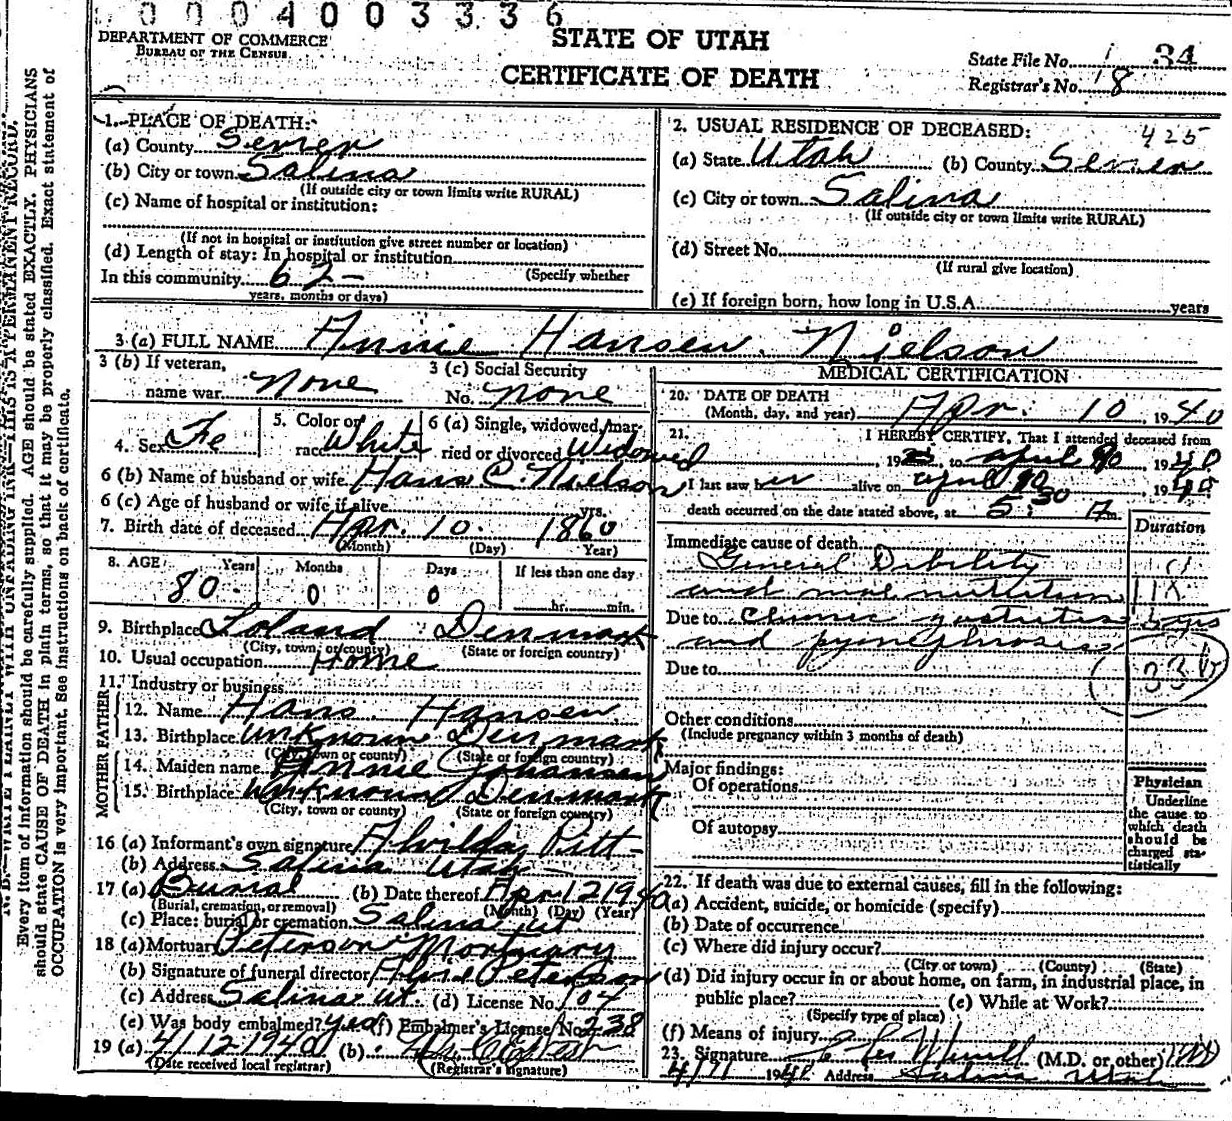 0004003336
DEPARTMENT OF COMMERCE
BUREAU OF THE CENSUS
STATE OF UTAH
CERTIFICATE OF DEATH
State File No. 34
Registrar's No. 18
1. PLACE OF DEATH:
(a) County Sevier
(b) City or town Salina
(If outside city or town limits write RURAL)
(c) Name of hospital or institution:
(If not in hospital or institution give street number or location)
(d) Length of stay: In hospital or institution
(Specify whether
In this community 62 -
years, months or days)
2. USUAL RESIDENCE OF DECEASED: 425
(a) State Utah (b) County Sevier
(c) City or town Salina
(If outside city or town limits write RURAL)
(d) Street No.
(If rural give location)
(e) If foreign born, how long in U.S.A. years
3 (a) FULL NAME Annie Hansen Nielson
3 (b) If veteran, name war None
3 (c) Social Security No. none
4. Sex Fe
5. Color or race White
6 (a) Single, widowed, married or divorced Widowed
6 (b) Name of husband or wife Hans C. Nielson
6 (c) Age of husband or wife if alive yrs.
7. Birth date of deceased Apr. 10. 1860
(Month) (Day) Year)
8. AGE Years Months Days If less than one day
80 0 0 hr. min.
9. Birthplace Loland Denmark
(City, town, or county) (State or foreign country)
10. Usual occupation Home
11. Industry or business
FATHER
12. Name Hans Hansen
13. Birthplace unknown Denmark
(City, town or county) (State or foreign country)
MOTHER
14. Maiden name Annie Johansen
15. Birthplace unknown Denmark
(City, town or county) (State or foreign country)
16 (a) Informant's own signature Alvilda Pitt
(b) Address Salina Utah
17 (a) Burial (b) Date thereof Apr 12 1940
(Burial, cremation, or removal) (Month) (Day) (Year)
(c) Place: burial or cremation Salina Ut
18 (a) Mortuary Peterson Mortuary
(b) Signature of funeral director Peterson
(c) Address Salina Ut. (d) License No. 104
(e) Was body embalmed? yes (f) Embalmer's License No. 238
19 (a) 4/12 1940 (b)
(Date received local registrar) (Registrar's signature)
MEDICAL CERTIFICATION
20. DATE OF DEATH
(Month, day, and year) Apr. 10 1940
21. I HEREBY CERTIFY, That I attended deceased from
, 19 to april 10, 1940
I last saw her alive on april 10, 1940
death occurred on the date stated above, at 5:30
Duration
Immediate cause of death
General Dibility
and mal nutrition
Due to chronic gastritis
and pyonephrosis
Due to
Other conditions
(Include pregnancy within 3 months of death)
Major findings:
Of operations
Of autopsy
Physician
Underline
the cause to
which death
should be
charged sta-
tistically
22. If death was due to external causes, fill in the following:
(a) Accident, suicide, or homicide (specify)
(b) Date of occurrence
(c) Where did injury occur?
(City or town) (County) (State)
(d) Did injury occur in or about home, on farm, in industrial place, in
public place? (e) While at Work?
(Specify type of place)
(f) Means of injury
23. Signature (M.D. or other) MD
1940 Address Salina Utah
N. B.—WRITE PLAINLY WITH UNFADING INK—THIS IS A PERMANENT RECORD.
Every item of information should be carefully supplied. AGE should be stated EXACTLY. PHYSICIANS
should state CAUSE OF DEATH in plain terms, so that it may be properly classified. Exact statement of
OCCUPATION is very important. See instructions on back of certificate.